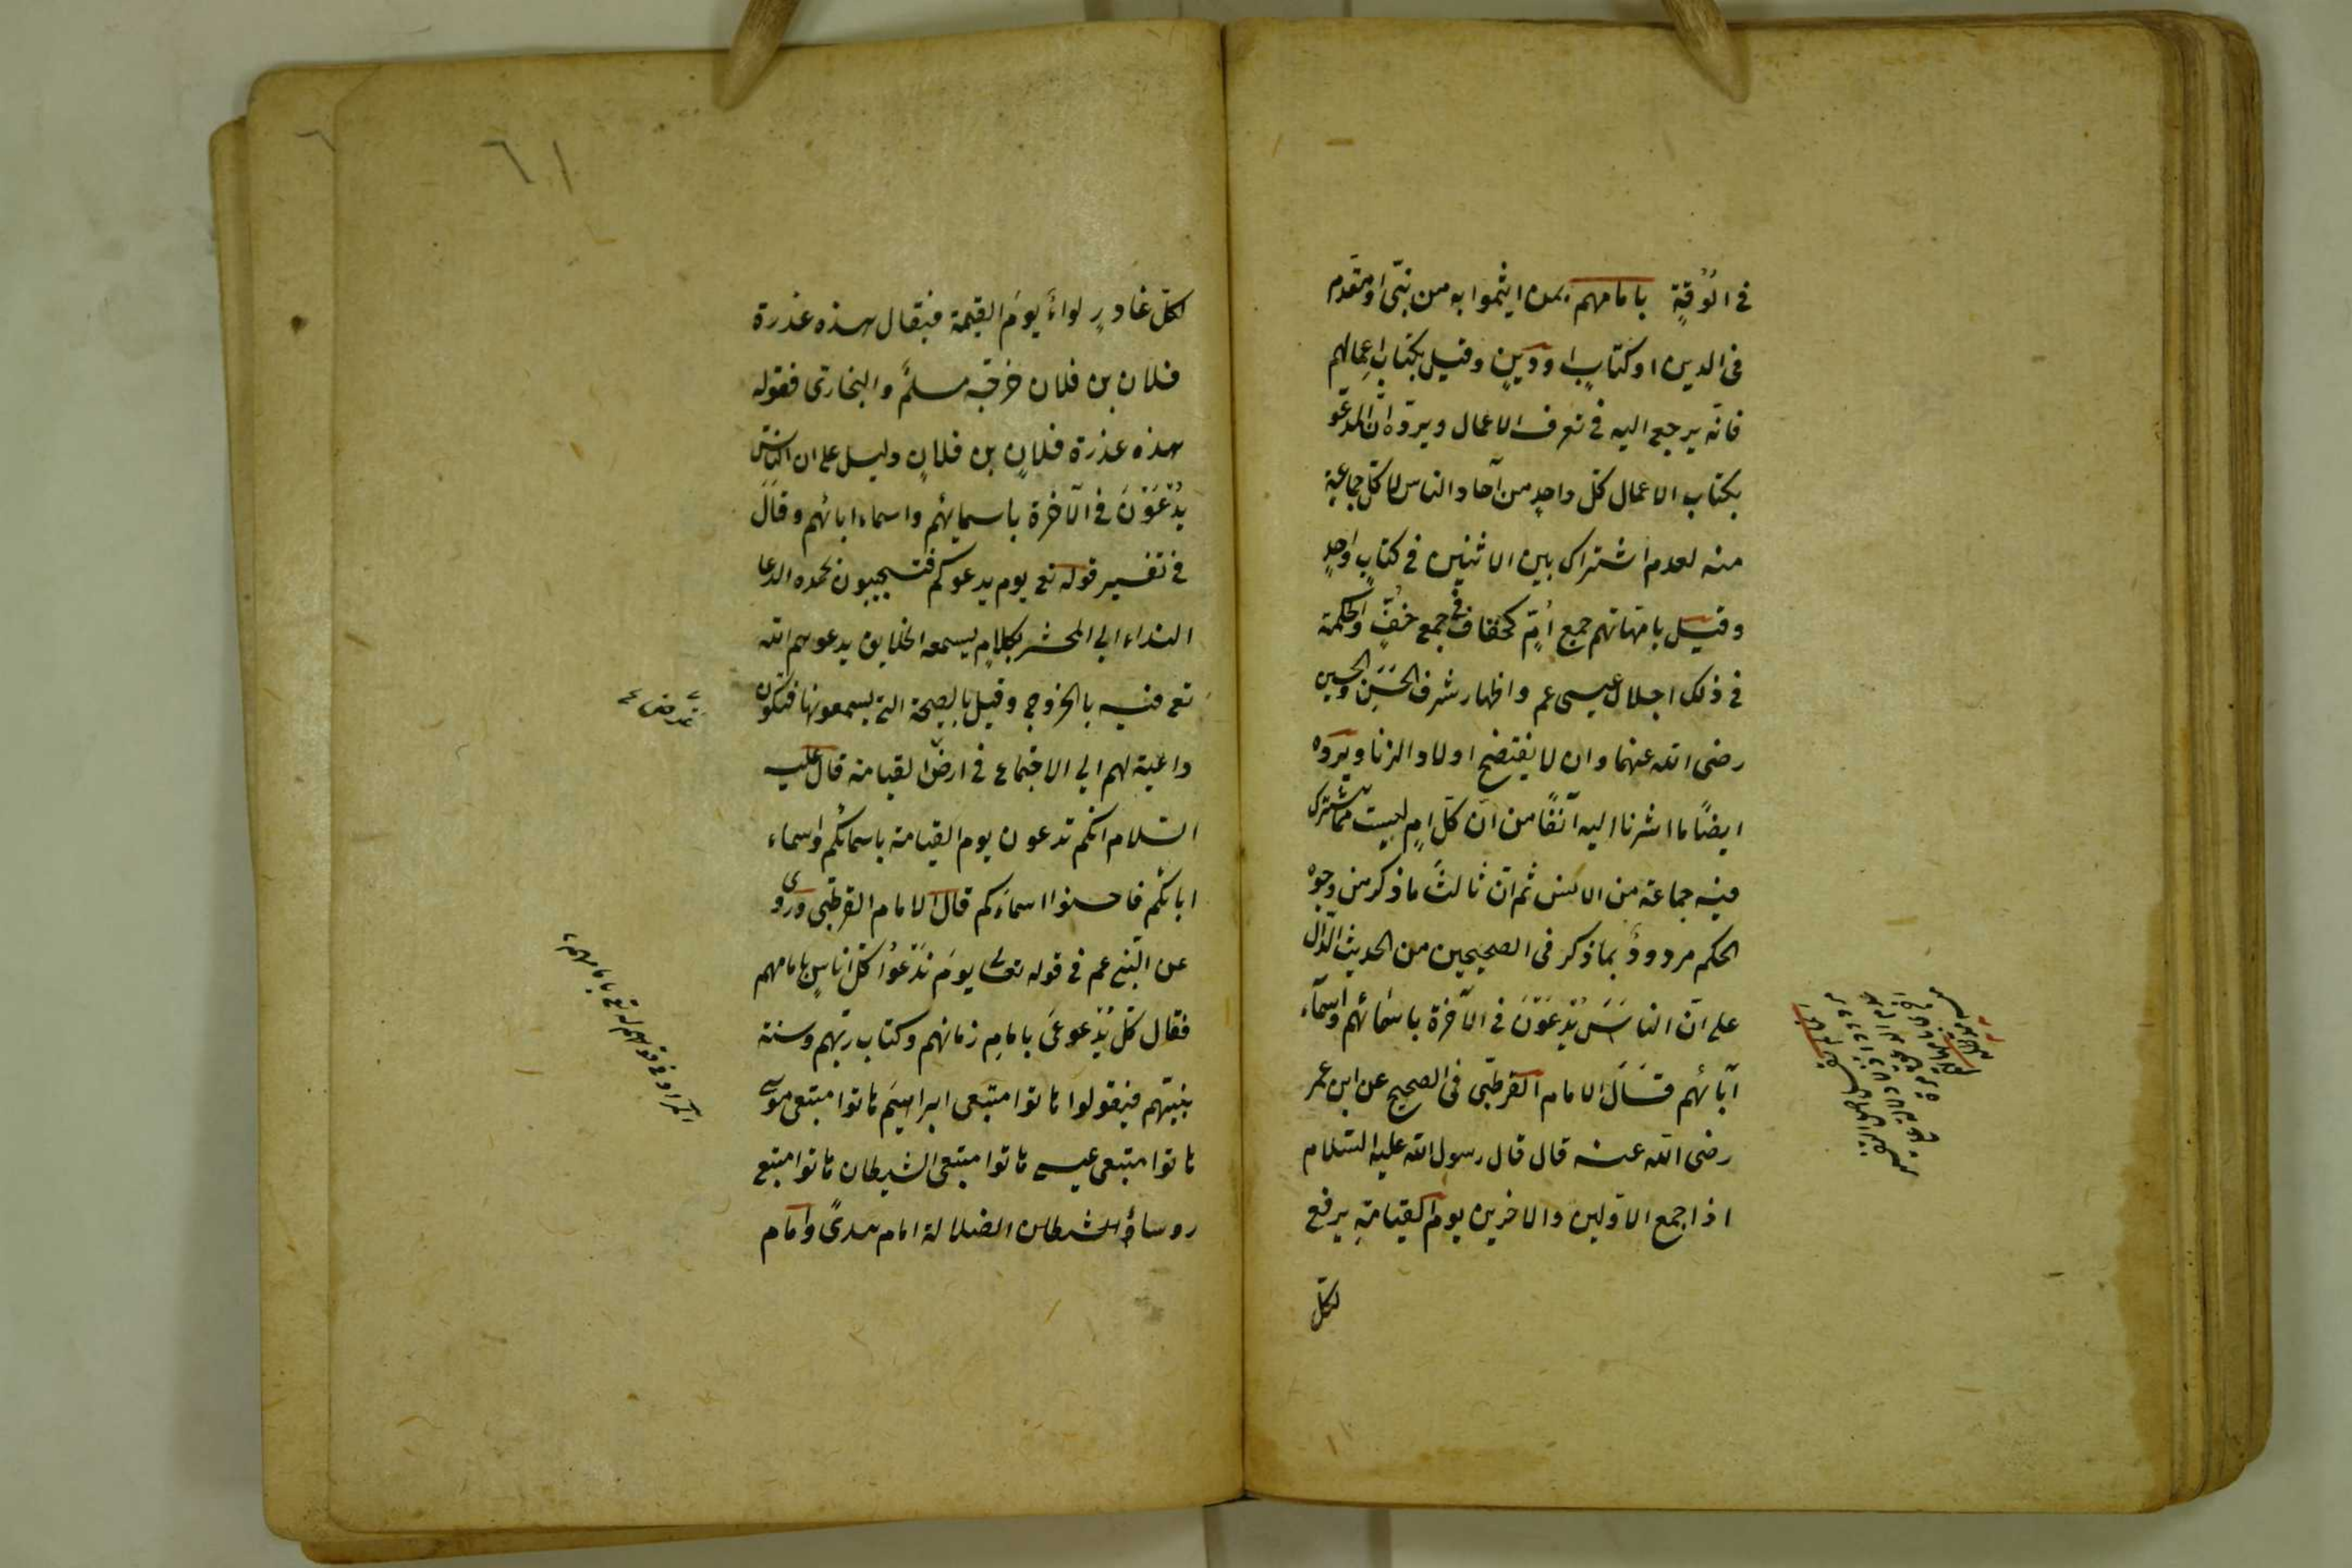 في الدقة بامامهم بمن ايتموا به من نبي او مقدم
في الدين او كتاب او دين وقيل بكتاب اعمالهم
فانه يرجع اليه في تعرف الاعمال ويرده ان المدعو
بكتاب الاعمال كل واحد من آحاد الناس لا كل جماعة
منه لعدم اشتراك بين الاثنين في كتاب واحد
وقيل بامهاتهم جمع ام كخفاف في جمع خف والحكمة
في ذلك اجلال عيسى عم واظهار شرف الحسن والحسين
رضى الله عنهما وان لا يفتضح اولاد الزنا ويرده
ايضا ما اشرنا اليه آنفا من ان كل ام ليست مما تشترك
فيه جماعة من الانس ثم ان ثالث ما ذكر من وجوه
الحكم مردود بما ذكر في الصحيحين من الحديث الدال
على ان الناس يدعون في الآخرة باسمائهم واسماء
آبائهم قال الامام القرطبى في الصحيح عن ابن عمر
رضى الله عنه قال قال رسول الله عليه السلام
اذا جمع الاولين والاخرين يوم القيامة يرفع
لكل
٦١
لكل غادر لواء يوم القيمة فيقال هذه غدرة
فلان بن فلان خرجه مسلم والبخارى فقوله
هذه غدرة فلان بن فلان دليل على ان الناس
يدعون في الآخرة باسمائهم واسماء ابائهم وقال
في تفسير قوله تع يوم يدعوكم فتستجيبون بحمده الدعا
النداء الي المحشر بكلام يسمعه الخلايق يدعوهم الله
تع فيه بالخروج وقيل بالصيحة التي يسمعونها فتكون
داعية لهم الي الاجتماع في ارض القيامة قال عليه
السلام انكم تدعون يوم القيامة باسمائكم واسماء
ابائكم فاحسنوا اسماءكم قال الامام القرطبى وروى
عن النبى عم في قوله تعالى يوم ندعوا كل اناس بامامهم
فقال كل يدعى بامام زمانهم وكتاب ربهم وسنة
نبيهم فيقولوا هاتوا متبعى ابراهيم هاتوا متبعى موسى
هاتوا متبعى عيسى هاتوا متبعى الشيطان هاتوا متبعى
روساء الضلالة امام هدى وامام